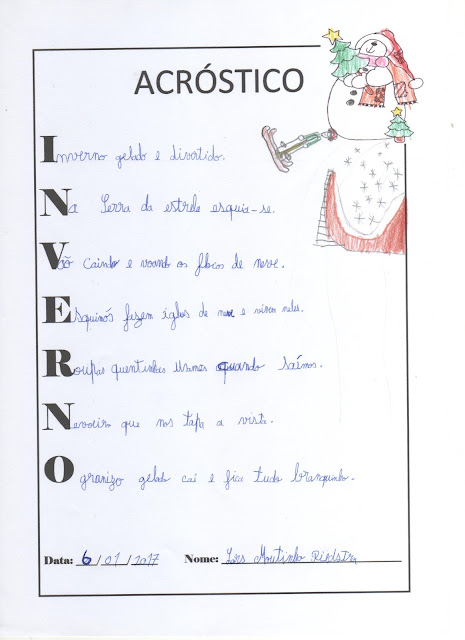 ACRÓSTICO
Inverno gelado e divertido.
Na Serra da estrela esquia-se.
Vão Caindo e voando os flocos de neve.
Esquimós fazem iglus de neve e vivem neles.
Roupas quentinhas usamos quando saímos.
Nevoeiro que nos tapa a vista.
O granizo gelado cai e fica tudo branquinho.
Data: 6/01/2017 Nome: Moutinho